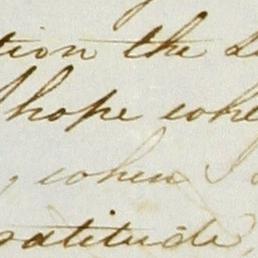 tion the
I hope whe
, when I
ratitude,